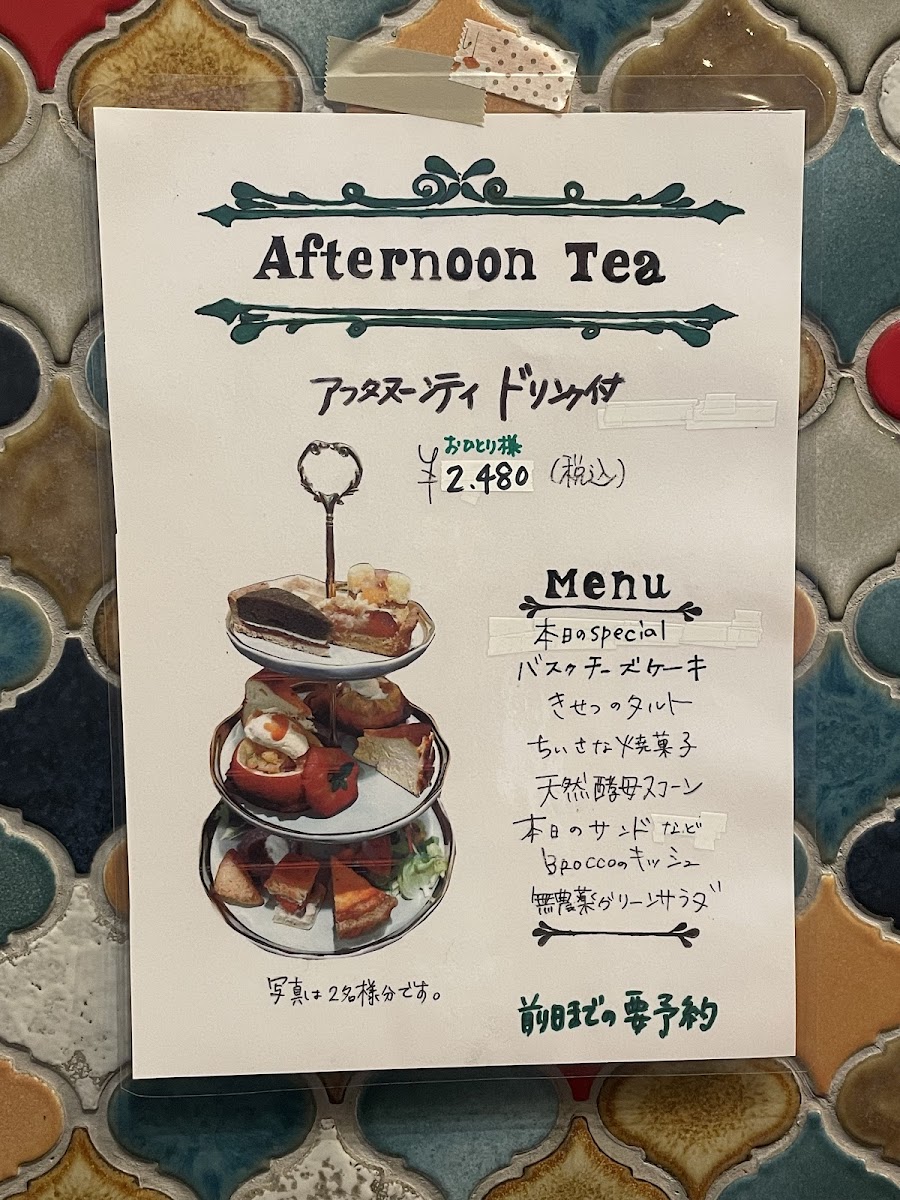 Afternoon Tea
アフタヌーンティ ドリンク付
おひとり様
¥2.480 (税込)
Menu
本日のspecial
バスクチーズケーキ
きせつのタルト
ちいさな焼菓子
天然酵母スコーン
本日のサンドなど
Broccoのキッシュ
無農薬グリーンサラダ
写真は2名様分です。
前日までの要予約